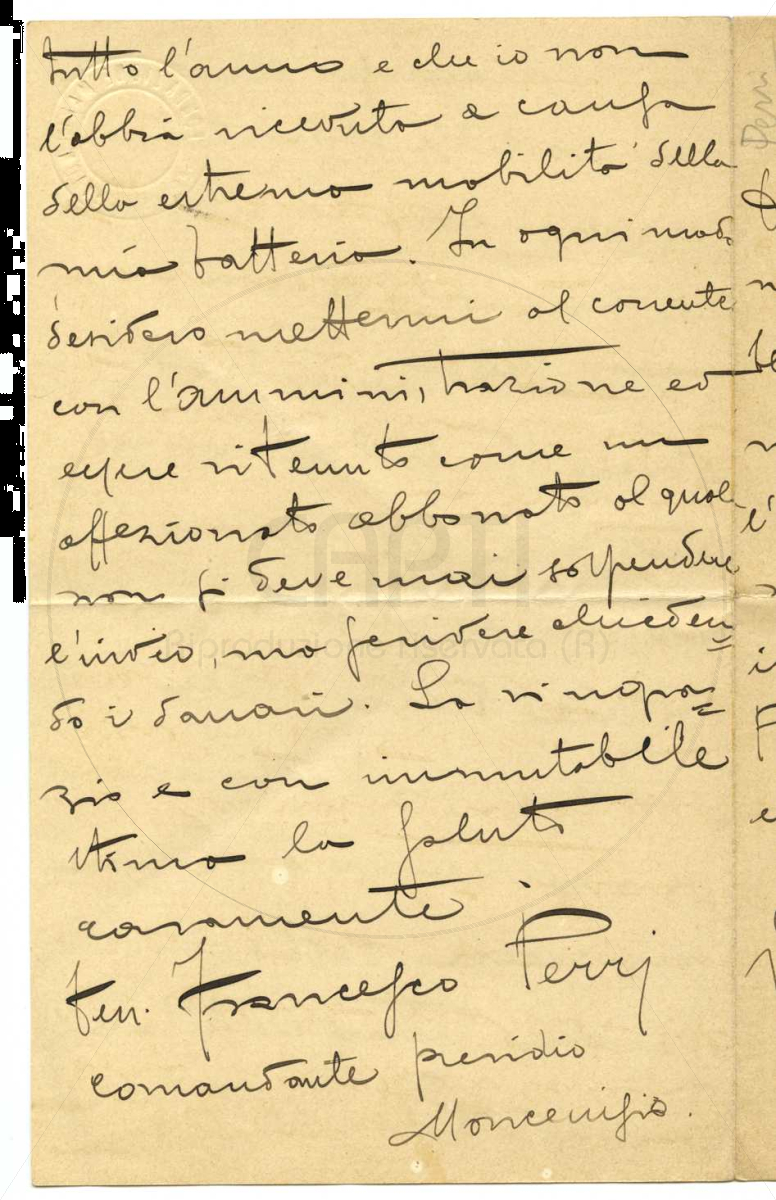 tutto l'anno e che io non
l'abbia ricevuta a causa
della estrema mobilità della
mia batteria. In ogni modo
desidero mettermi al corrente
con l'amministrazione ed
essere ritenuto come un
affezionato abbonato al quale
non si deve mai sospendere
l'invio, ma scrivere chieden=
do i danari. La ringra=
zio e con immutabile
stima la saluto
caramente
Ten. Francesco Perri
comandante presidio
Moncenisio.
CAPTI
Riproduzione riservata (R)
Perri